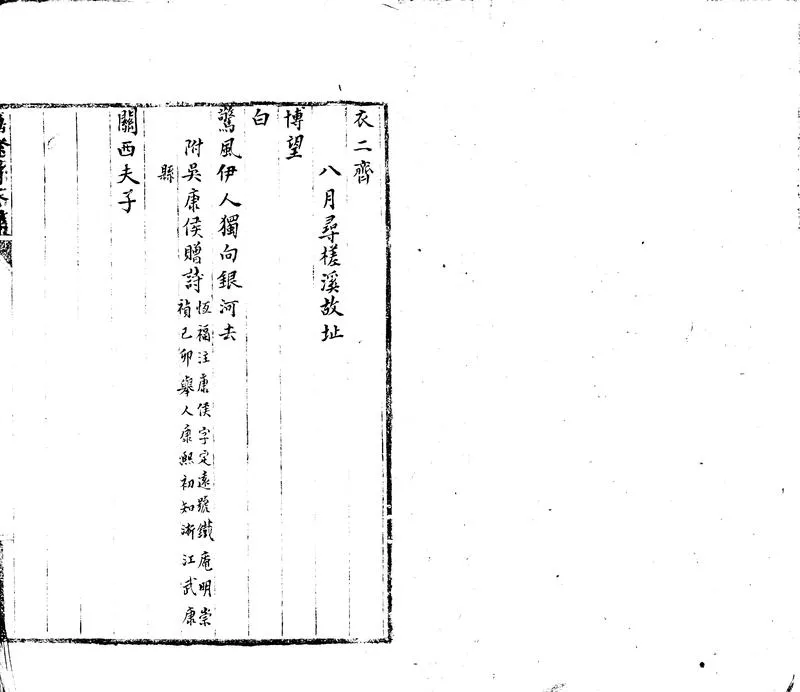 衣二齊
八月尋槎溪故址
博望
白
驚風伊人獨向銀河去
附吳康侯贈詩
恆福注康侯字定遠號鐵庵明崇
禎己卯舉人康熙初知浙江武康
縣
關西夫子